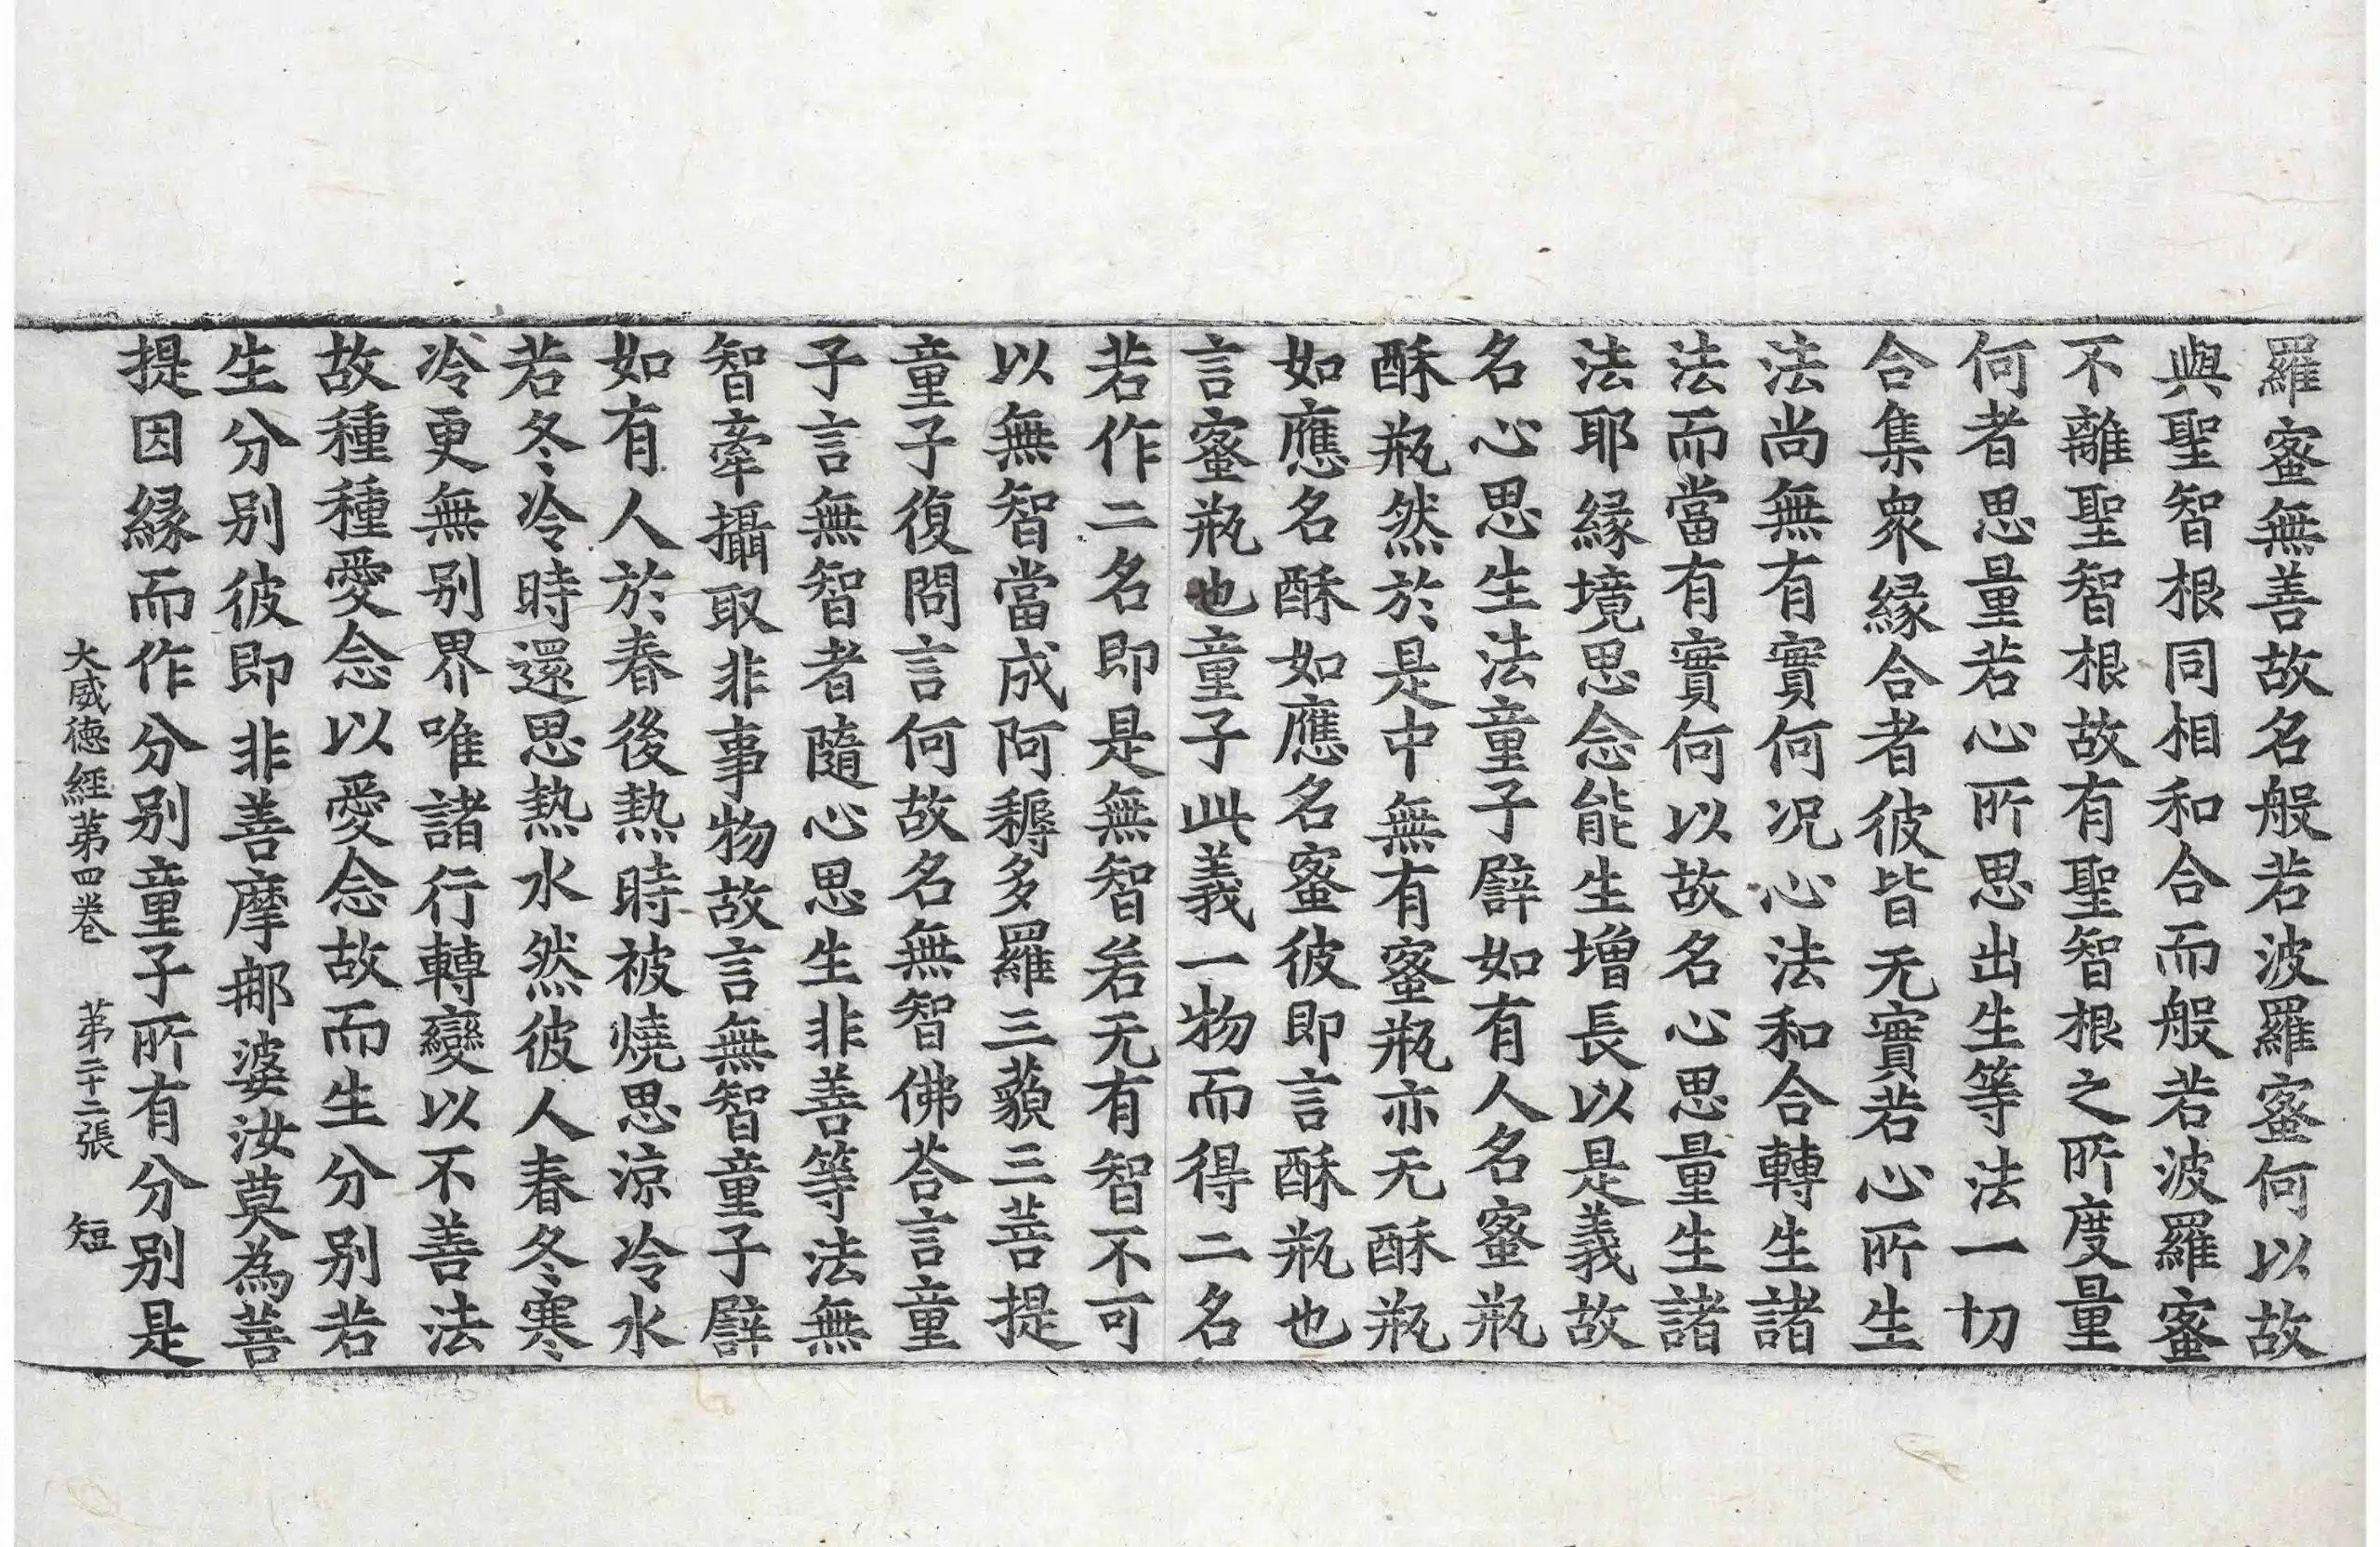 羅蜜無善故名般若波羅蜜何以故
與聖智根同相和合而般若波羅蜜
不離聖智根故有聖智根之所度量
何者思量若心所思出生等法一切
合集衆緣合者彼皆无實若心所生
法尚無有實何况心法和合轉生諸
法而當有實何以故名心思量生諸
法耶緣境思念能生增長以是義故
名心思生法童子譬如有人名蜜瓶
酥瓶然於是中無有蜜瓶亦无酥瓶
如應名酥如應名蜜彼即言酥瓶也
言蜜瓶也童子此義一物而得二名
若作二名即是無智若无有智不可
以無智當成阿耨多羅三藐三菩提
童子復問言何故名無智佛荅言童
子言無智者隨心思生非善等法無
智牽攝取非事物故言無智童子譬
如有人於春後熱時被燒思涼冷水
若冬冷時還思熱水然彼人春冬寒
冷更無别界唯諸行轉變以不善法
故種種愛念以愛念故而生分别若
生分别彼即非善摩㖠婆汝莫為菩
提因緣而作分别童子所有分别是
大威德經苐四卷 苐二十二張 短